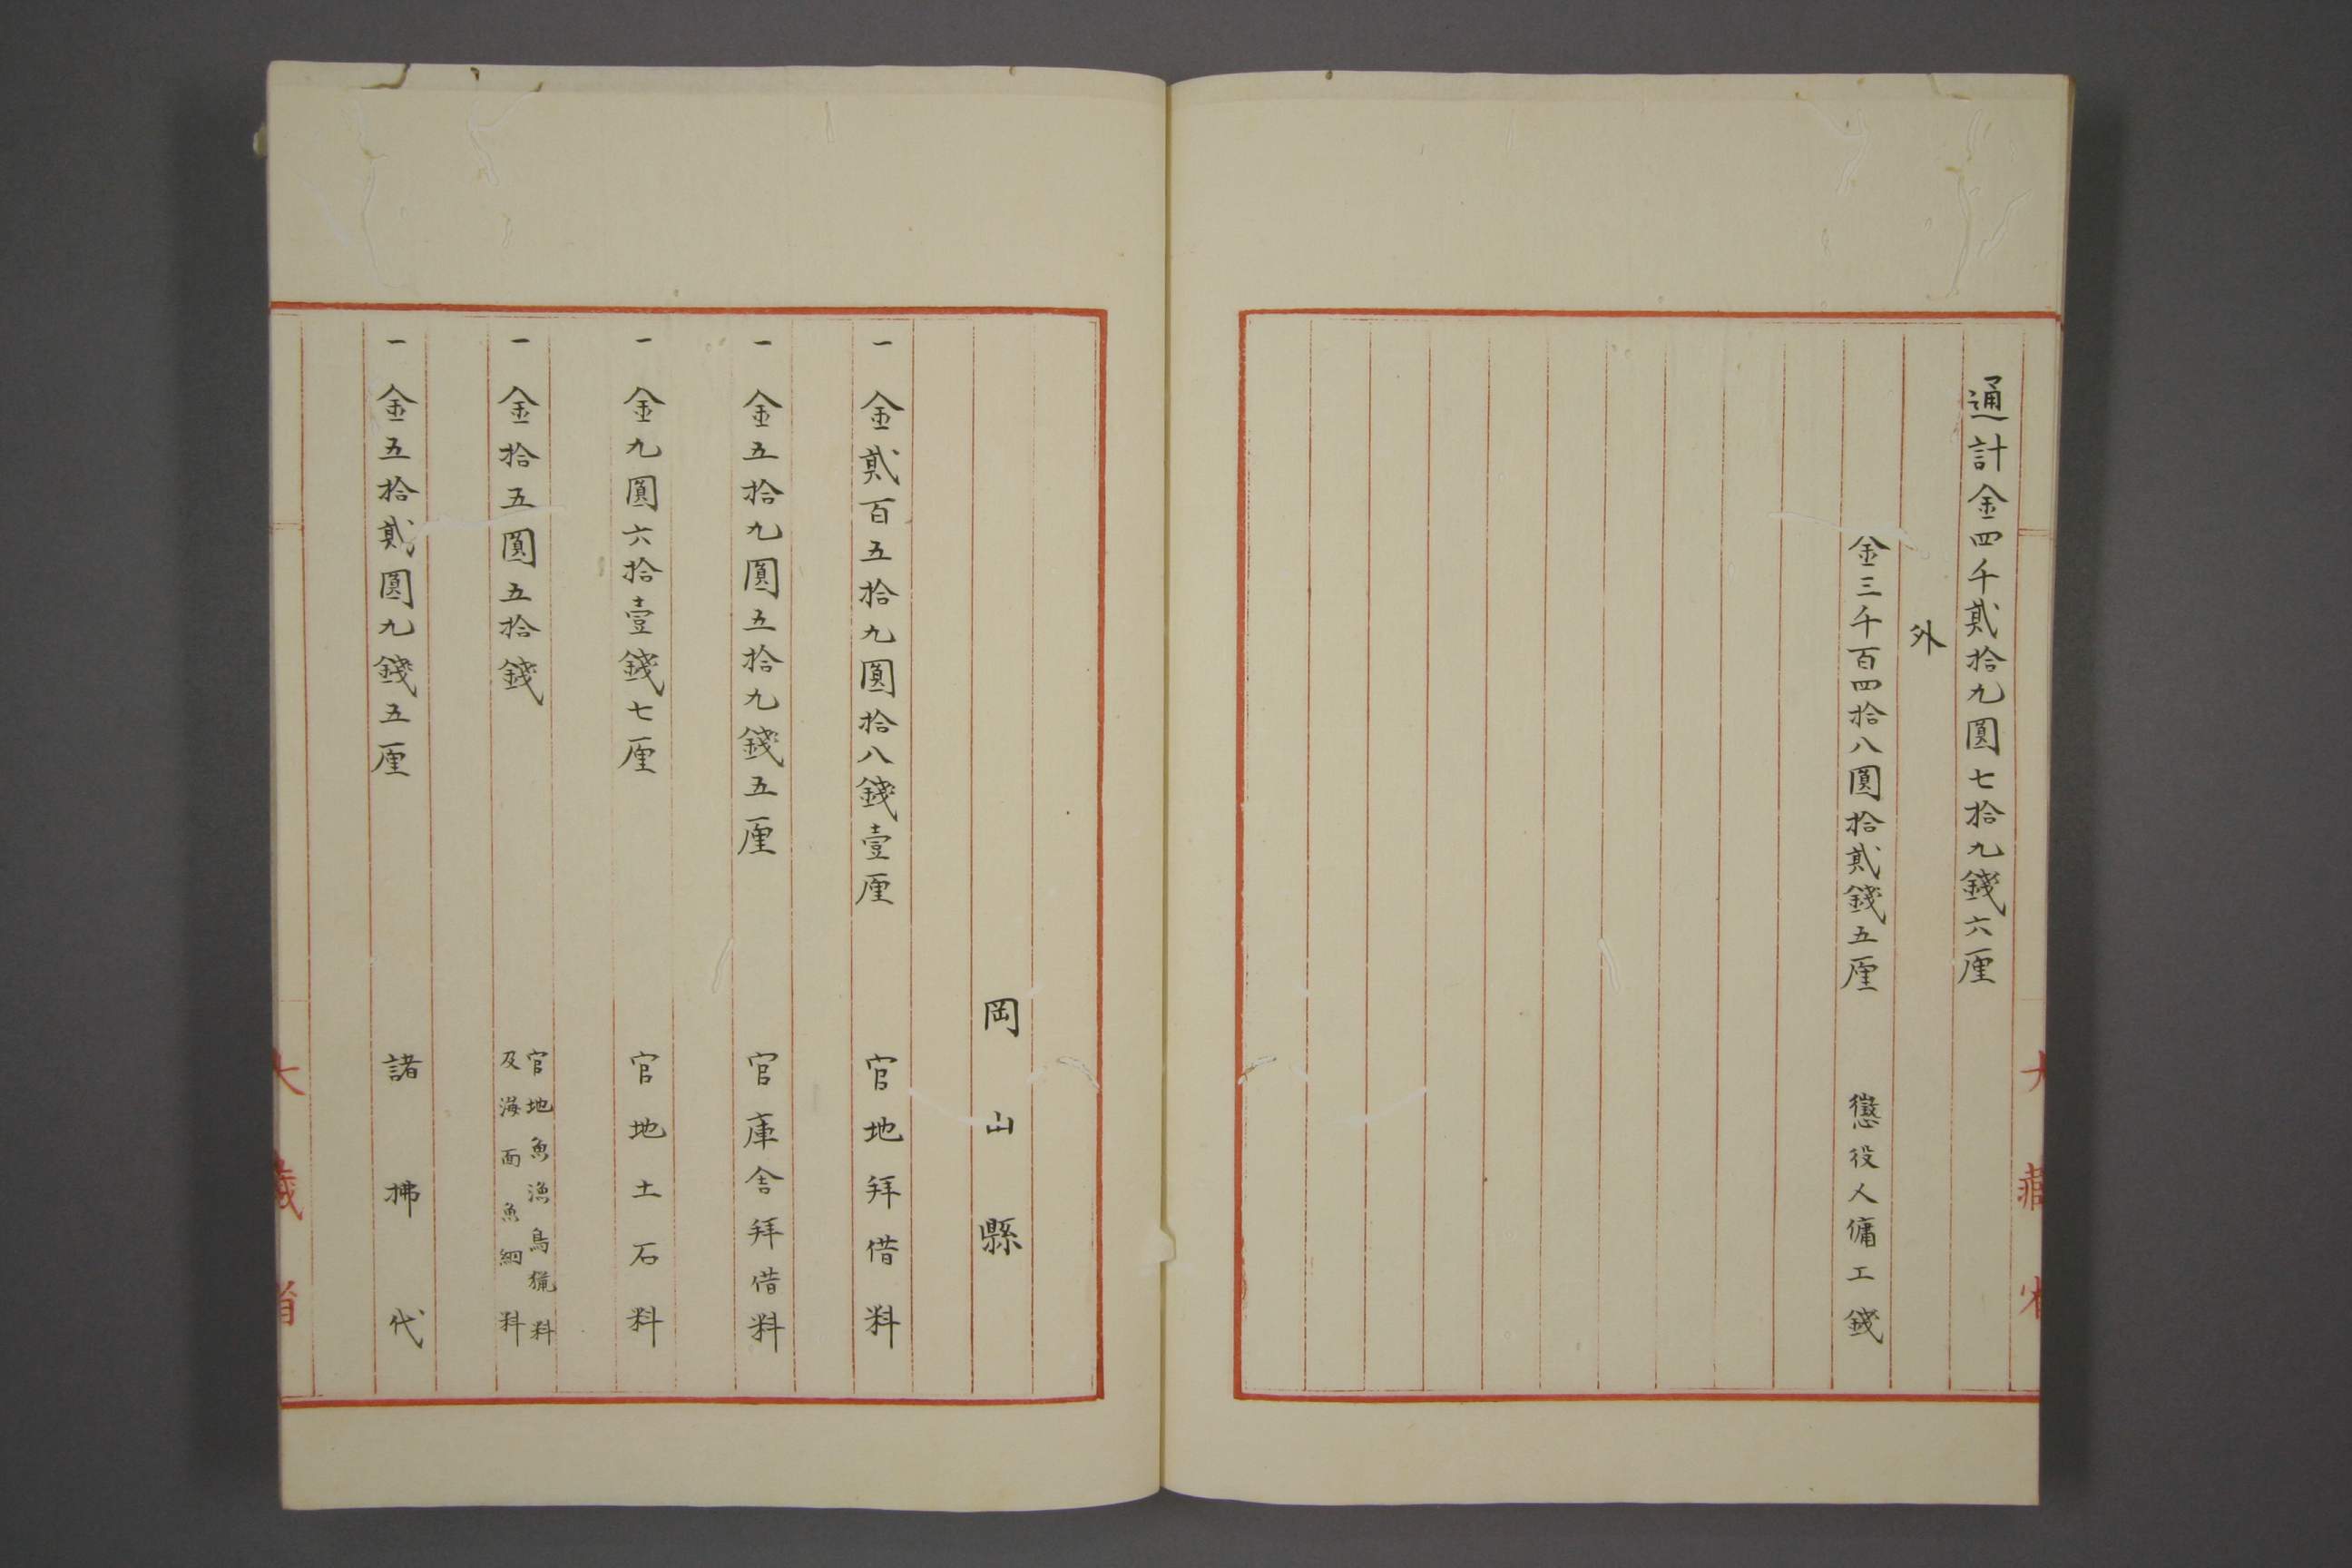 通計金四千貳拾九圓七拾九錢六厘
外
金三千百四拾八圓拾貳錢五厘 懲役人傭工錢
岡山縣
一 金貳百五拾九圓拾八錢壹厘 官地拜借料
一 金五拾九圓五拾九錢五厘 官庫舎拜借料
一 金九圓六拾壹錢七厘 官地土石料
一 金拾五圓五拾錢 官地魚漁鳥猟料
及海面魚網料
一 金五拾貳圓九錢五厘 諸拂代
大藏省